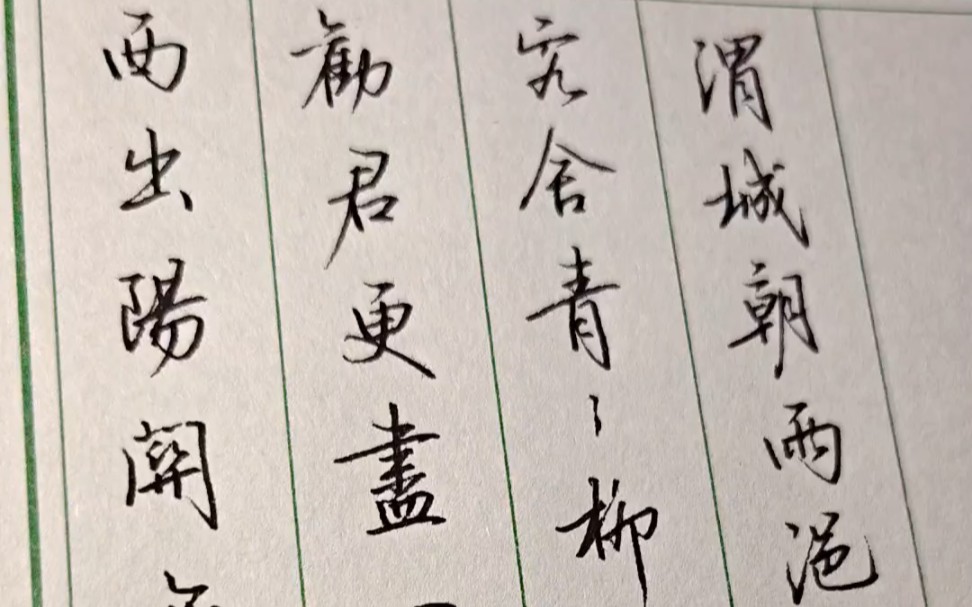 渭城朝雨浥
客舍青〻柳
勸君更盡
西出陽關